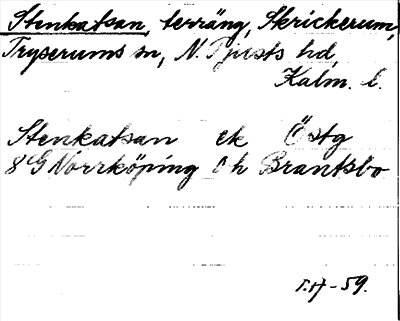 Stenkatsan, terräng, Skrickerum,
Tryserums sn, N. Tjusts hd,
Kalm. l.
Stenkatsan ek Östg
8G Norrköping 0h Brantsbo
-59.